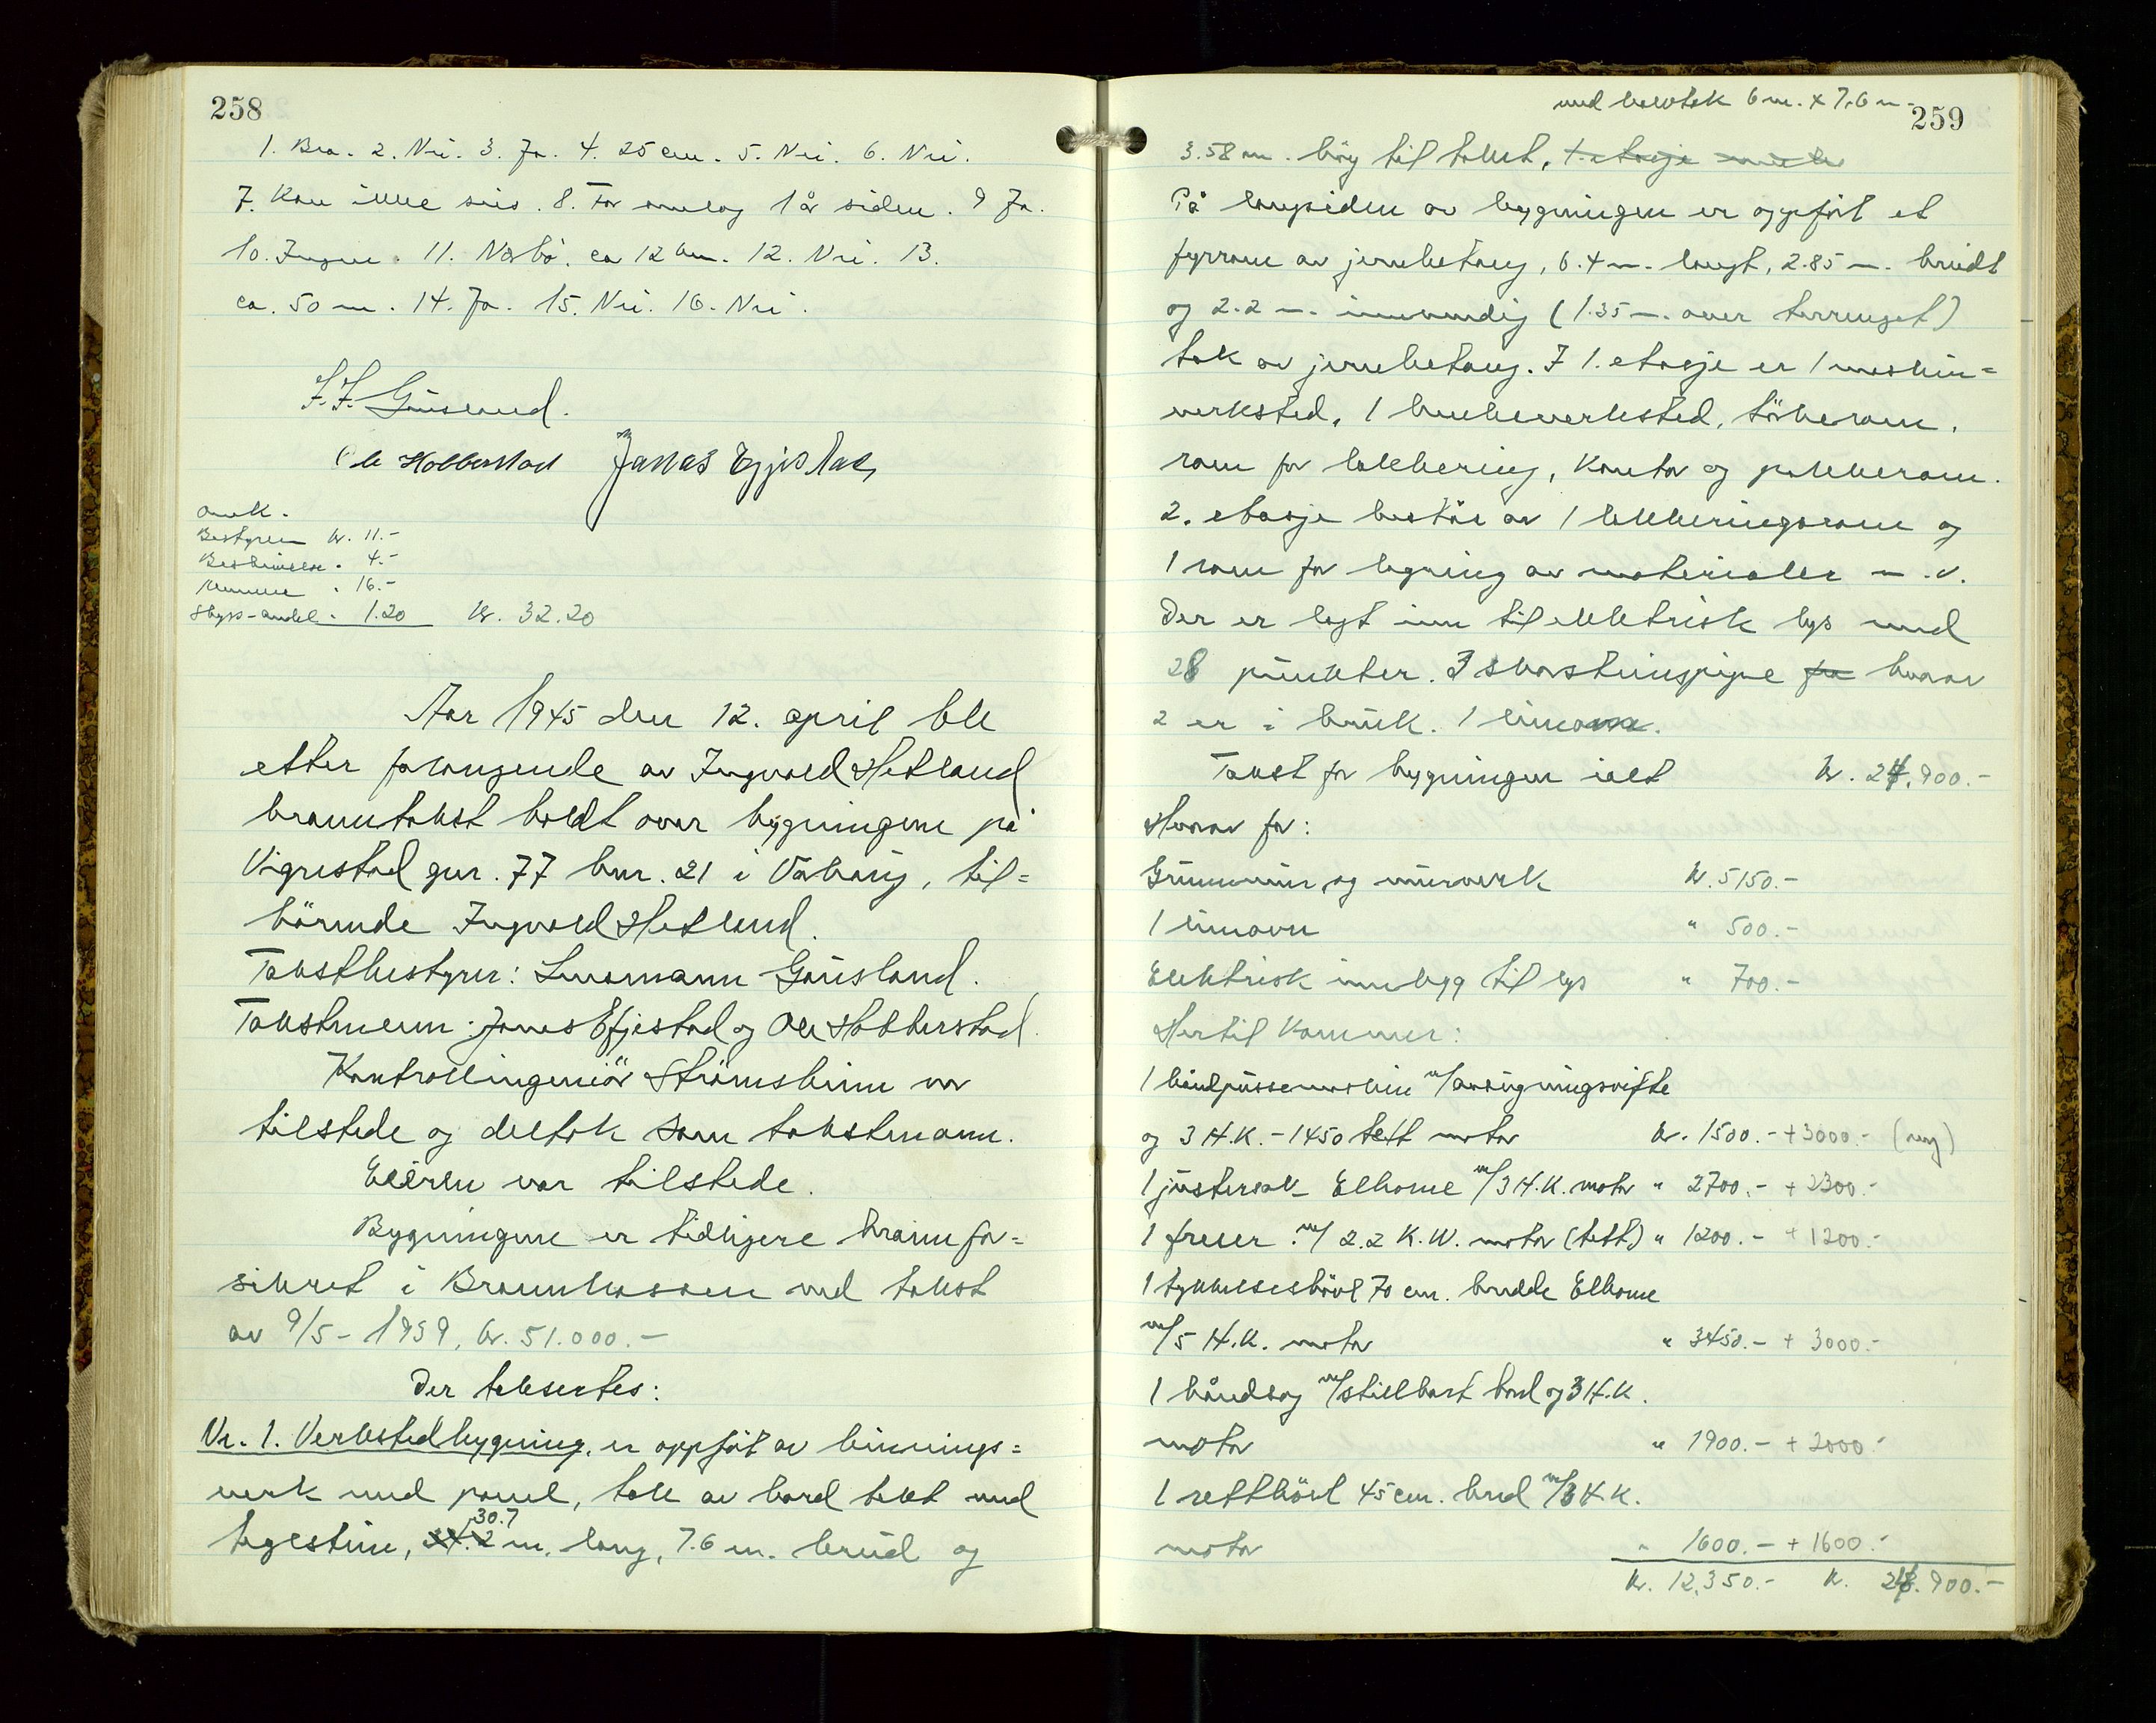 258
1. Bra. 2. Nei. 3. Ja. 4. 25 cm. 5. Nei. 6. Nei.
7. Kan ikke sies. 8. For omlag 1 år siden. 9 Ja.
10. Ingen. 11. Nærbø. ca 12 km. 12. Nei. 13.
ca. 50 m. 14. Ja. 15. Nei. 16. Nei.
Gausland.
Ole Hobberstad Jonas Egjestad
Omk.
Bestyreren kr. 11.-
Beskrivelse " 4.-
Mennene " 16.-
Skyss-andel " 1.20 Kr. 32.20
Aar 1945 den 12. april ble
etter forlangende av Ingvald Hetland
branntakst holdt over bygningene på
Vigrestad gnr. 77 bnr. 21 i Varhaug, til=
hörende Ingvald Hetland.
Takstbestyrer: Lensmann Gausland.
Takstmenn: Jonas Egjestad og Ole Hobberstad.
Kontrollingeniör Strömsheim var
tilstede og deltok som takstmann.
Eieren var tilstede.
Bygningene er tidligere brannfor=
sikret i Brannkassen ved takst
av 9/5-1939, kr. 51.000.-
Der taksertes:
Nr. 1. Verkstedbygning, er oppfört av binnings=
verk med panel, tak av bord tekt med
30.7
teglstein, m. lang, 7.6 m. breid og
259
med halvtak 6 m. x 7.6 m.
3.58 m. höy til taket, 1. etasje
På langsiden av bygningen er oppfört et
fyrrom av jernbetong, 6.4 m. langt, 2.85 m. breidt
og 2.2 m. innvendig (1.35 m. over terrenget)
tak av jernbetong. I 1. etasje er 1 maskin=
verksted, 1 benkeverksted, törkerom,
rom for lakkering, kontor og pakkerom.
2. etasje består av 1 lakkeringsrom og
1 rom for lagring av materialer m.v.
Der er lagt inn til elektrisk lys med
28 punkter. 3 skorsteinspipe fra hvorav
2 er i bruk. 1 limovn.
Takst for bygningen ialt kr. 24.900.-
Hvorav for:
Grunnmur og murverk kr. 5150.-
1 limovn " 500.-
Elektrisk innlegg til lys " 700.-
Hertil kommer:
1 båndpussemaskin m/avsugningsvifte
og 3 H.K. - 1450 tett motor kr. 1500.- + 3000.- (ny)
1 justersak Elhome m/3 H.K. motor " 2700.- + 2300.-
1 freser m/ 2.2 K.W. motor (tett) " 1200.- + 1200.-
1 tykkelseshövl 70 cm. bredde Elhome
m/5 H.K. motor " 3450.- + 3000.-
1 båndsag m/stillbart bord og 3 H.K.
motor " 1900.- + 2000.-
1 retthövl 45 cm. bred m/3 H.K.
motor " 1600.- + 1600.-
kr. 12.350.- kr. 24.900.-